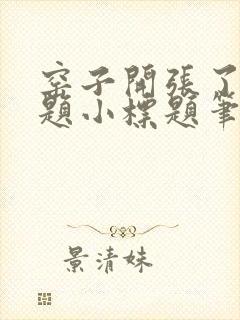 窑子開張了
題小標題筆
景清妹